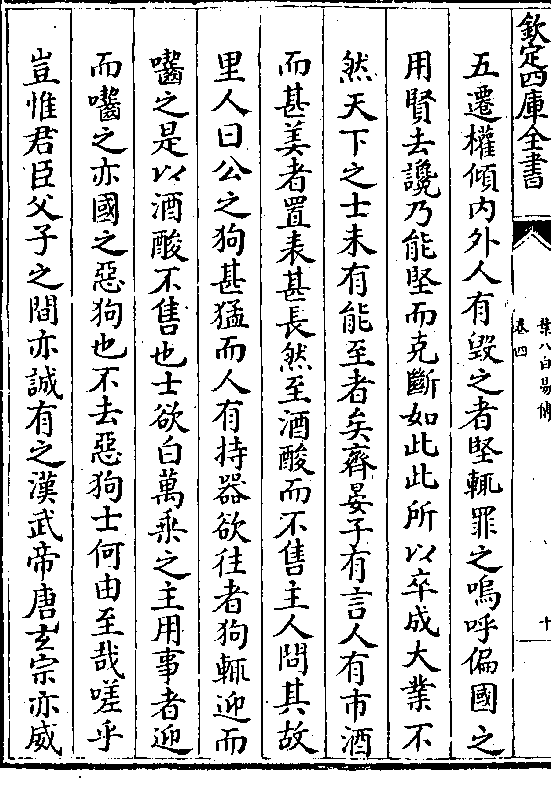 欽定四庫全書
葉八白易傳
卷四
十
五遷權傾内外人有毀之者堅輒罪之嗚呼偏國之
用賢去讒乃能堅而克斷如此此所以卒成大業不
然天下之士未有能至者矣齊晏子有言人有市酒
而甚美者置表甚長然至酒酸而不售主人問其故
里人曰公之狗甚猛而人有持器欲往者狗輒迎而
嚙之是以酒酸不售也士欲白萬乘之主用事者迎
而嚙之亦國之惡狗也不去惡狗士何由至哉嗟乎
豈惟君臣父子之間亦誠有之漢武帝唐玄宗亦威